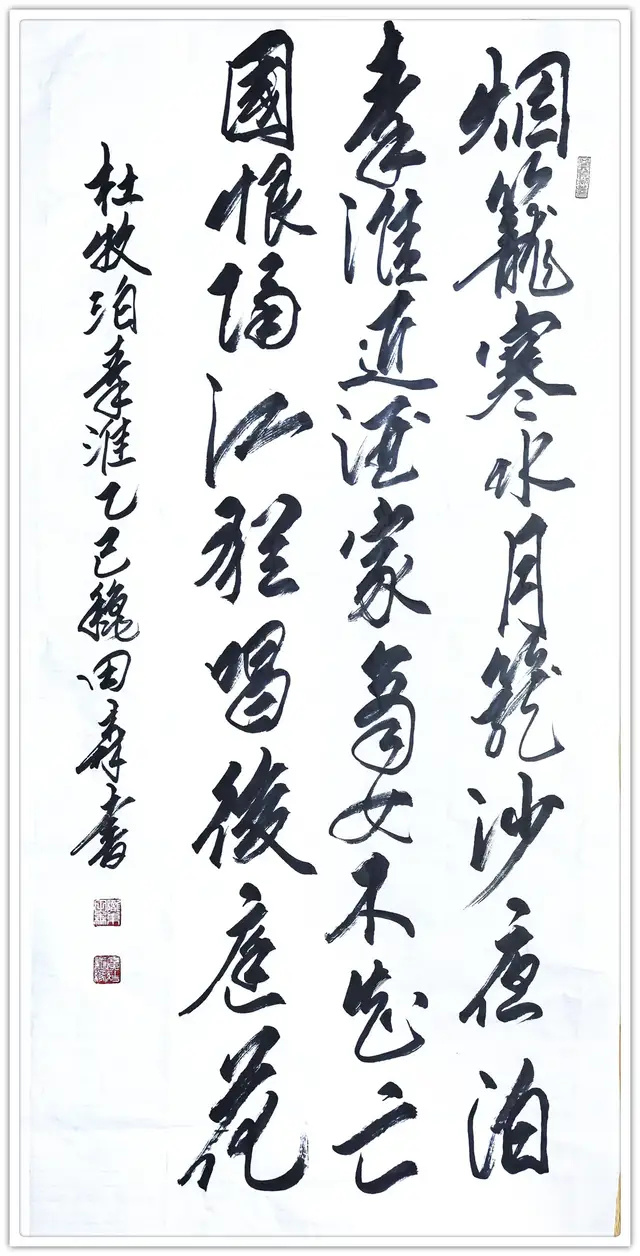 烟籠寒水月籠沙夜泊
秦淮近酒家商女不知亡
國恨隔江猶唱後庭花
杜牧泊秦淮乙巳魏田森書